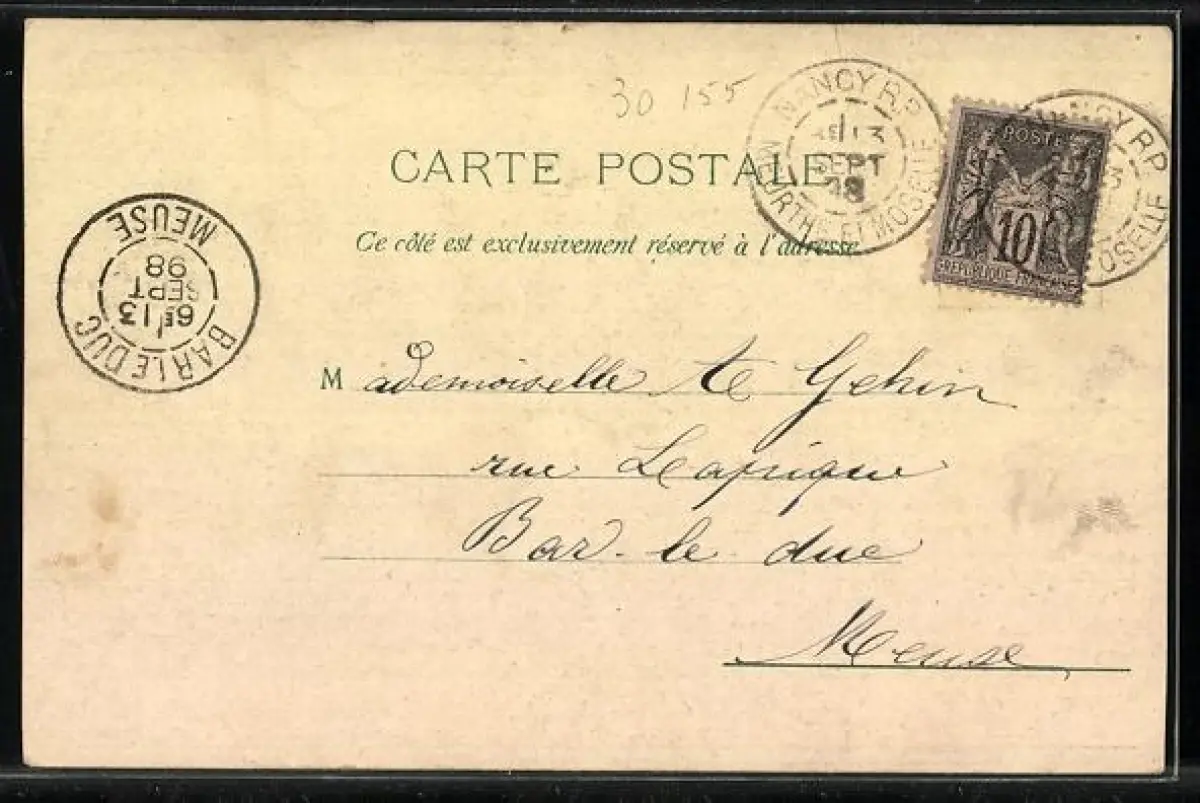 30 155
NANCY R.P.
13
SEPT
98
MEURTHE ET MOSELLE
POSTE
10
REPUBLIQUE FRANÇAISE
NANCY R.P.
MOSELLE
CARTE POSTALE
Ce côté est exclusivement réservé à l'adresse
BAR LE DUC
6E 13
SEPT
98
MEUSE
Mademoiselle Gehin
rue Lapique
Bar-le-duc
Meuse